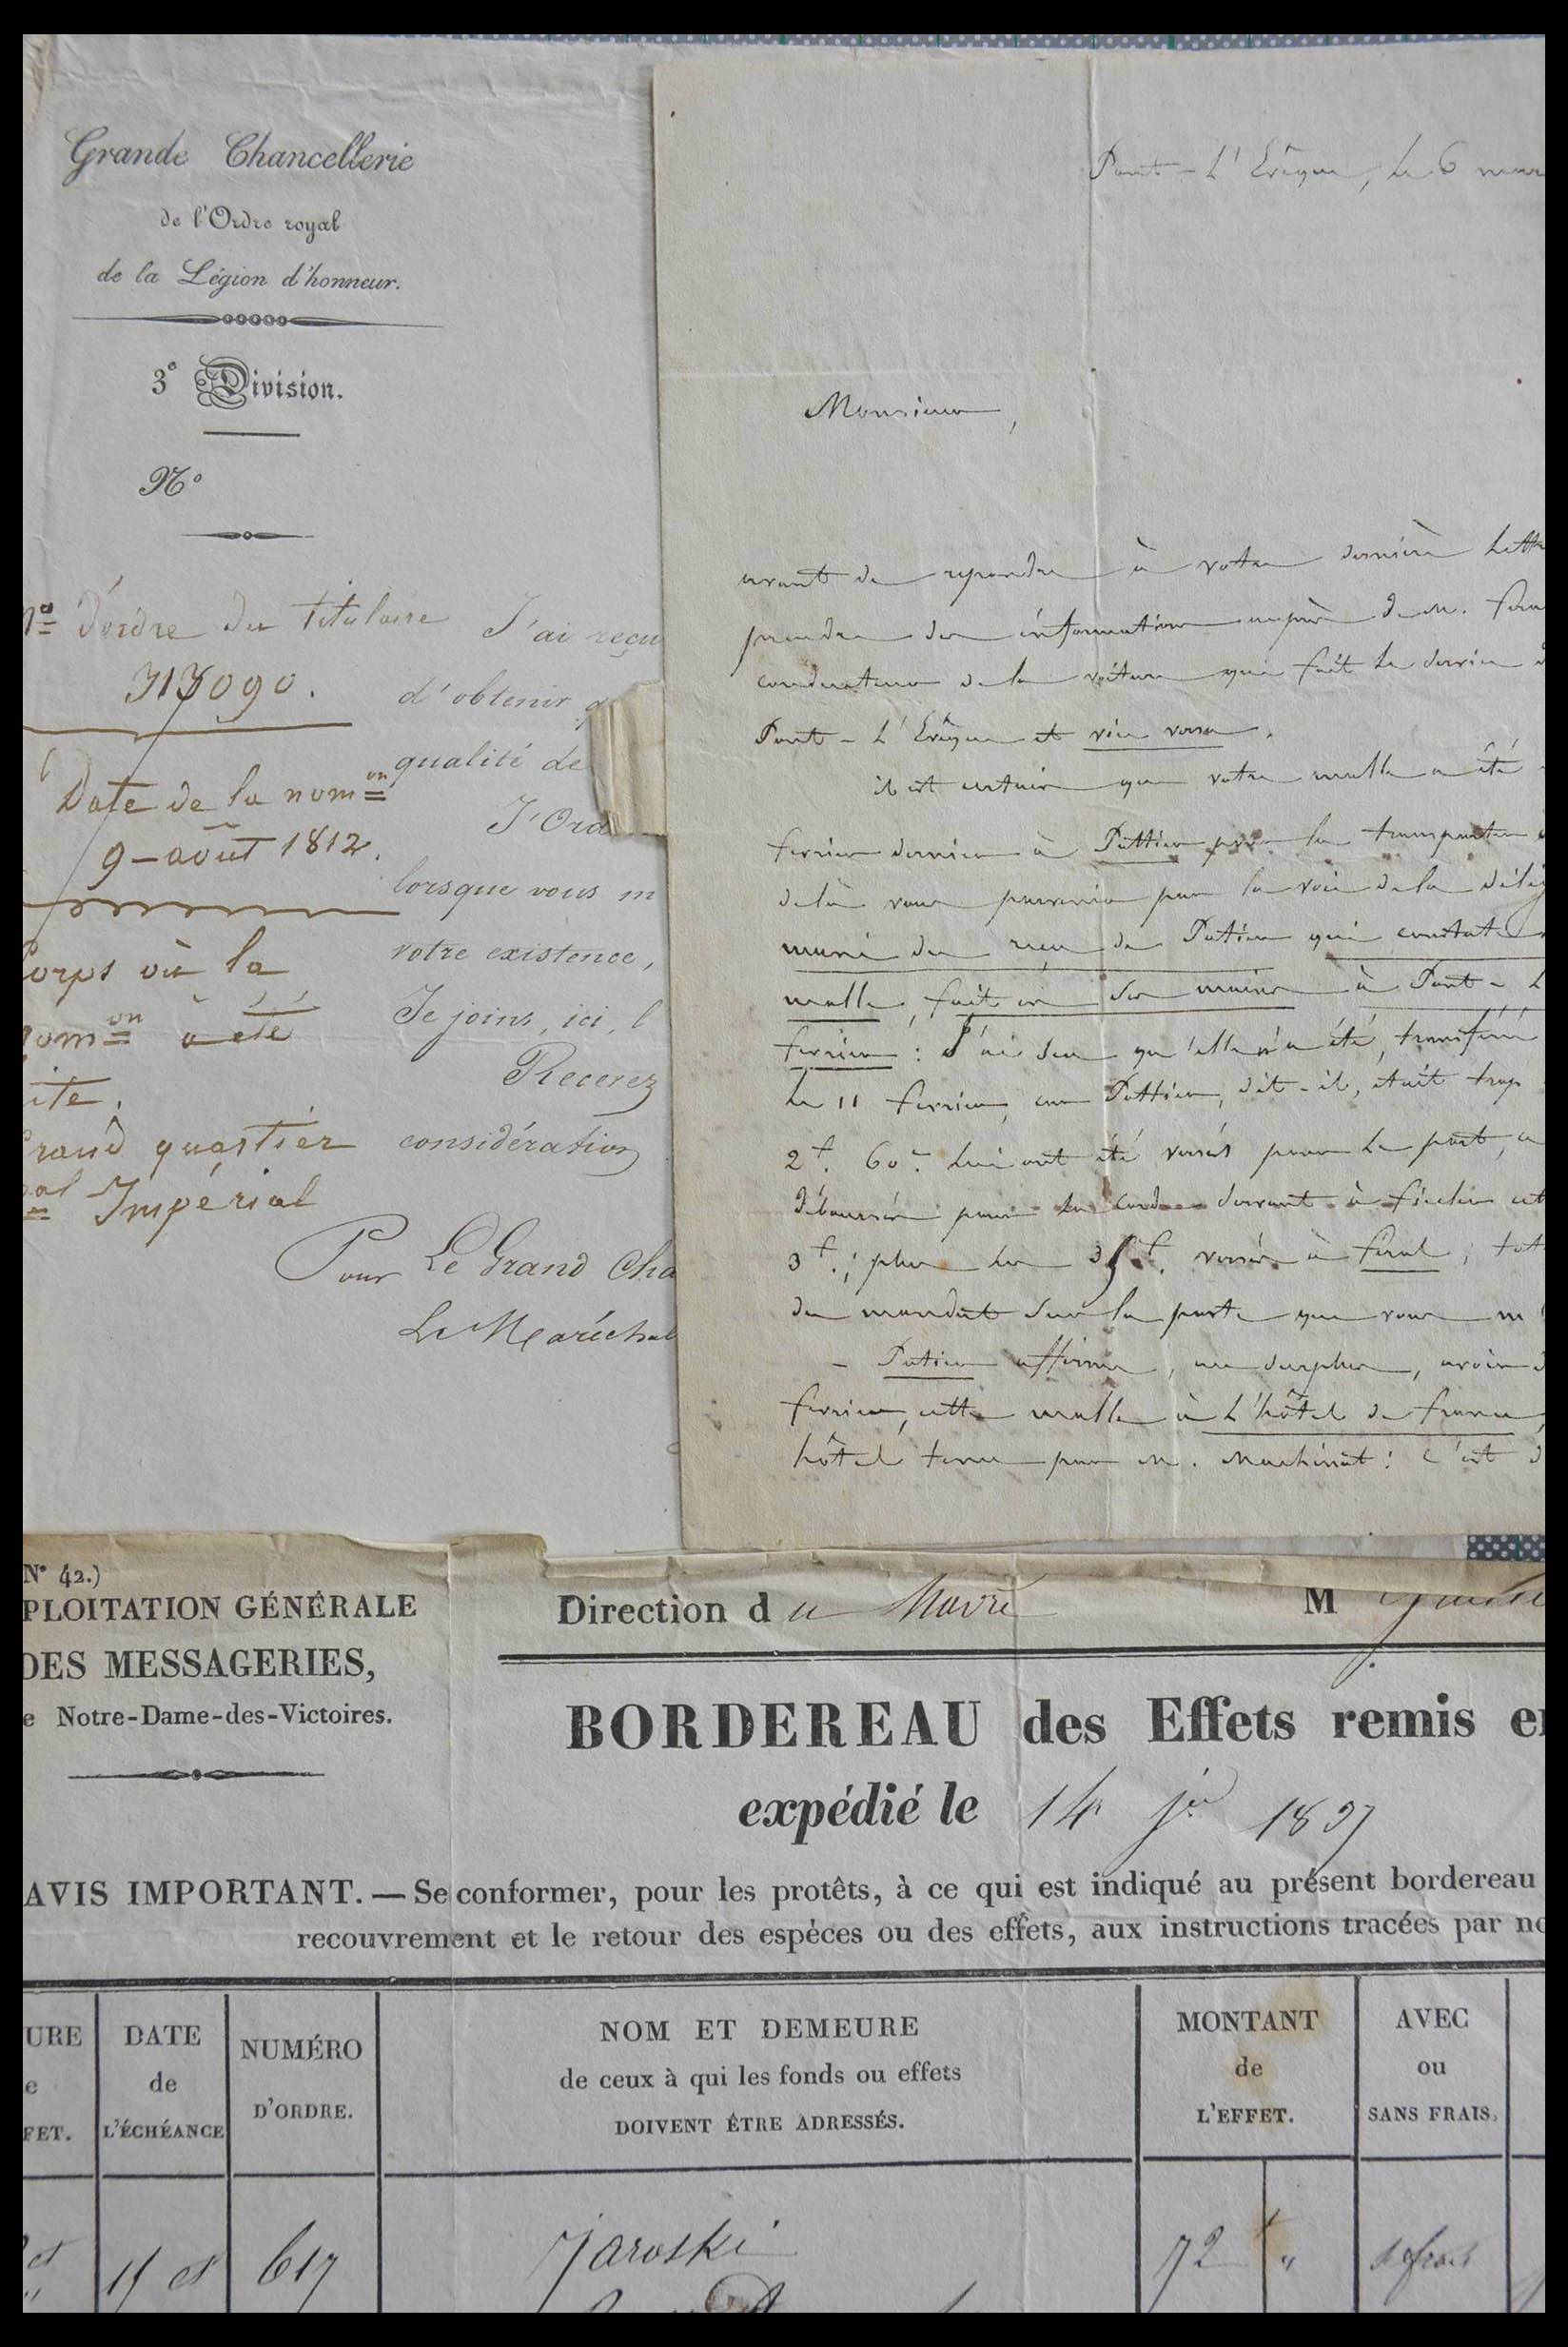 Grande Chancellerie
de l'Ordre royal
de la Légion d'honneur.
3e Division.
No
No d'ordre du titulaire
Date de la nomon
9 – août 1812.
Corps où la
nomon a été
ite.
Grand quartier
Impérial
J'ai reçu
d'obtenir
qualité de
J'Ord
lorsque vous m
votre existence,
Je joins, ici, l
Recevez
considération
Pour Le Grand Cha
Le Maréchal
Pont - L'Evêque, le 6 mar
Monsieur,
avant de repondre à votre dernière lettre
prendre des informations auprès de m.
conducteur de la voiture qui fait le service d
Pont - L'Evêque et vice versa.
il est certain que votre malle a été
fevrier dernier à Pattier pour la transporter
delà vous parvenir par la voie de la dilig
muni du reçu de Patier qui constate
malle, fait en ses mains à Pont - L
fevrier : j'ai su qu'elle n'a été transférée
le 11 fevrier, car Pattier, dit-il, etait trop
2f. 60c. lui ont été versés pour le port, a
déboursés pour la corde servant à ficeler cet
3f. ; plus les versés à ; tot
du mandat sur la poste que vous m
- Patier affirme, au surplus, avoir d
fevrier, cette malle à L'hôtel de france,
hôtel tenu par m. : c'est d
No 42.)
PLOITATION GÉNÉRALE
DES MESSAGERIES,
e Notre-Dame-des-Victoires.
Direction du Havre M
BORDEREAU des Effets remis en
expédié le 14 jer 1837
AVIS IMPORTANT. — Se conformer, pour les protêts, à ce qui est indiqué au présent bordereau
recouvrement et le retour des espèces ou des effets, aux instructions tracées par no
URE
e
FET.
DATE
de
L'ÉCHÉANCE
NUMÉRO
D'ORDRE.
NOM ET DEMEURE
de ceux à qui les fonds ou effets
DOIVENT ÊTRE ADRESSÉS.
MONTANT
de
L'EFFET.
AVEC
ou
SANS FRAIS.
15 ct 617 Jaroski 72 "